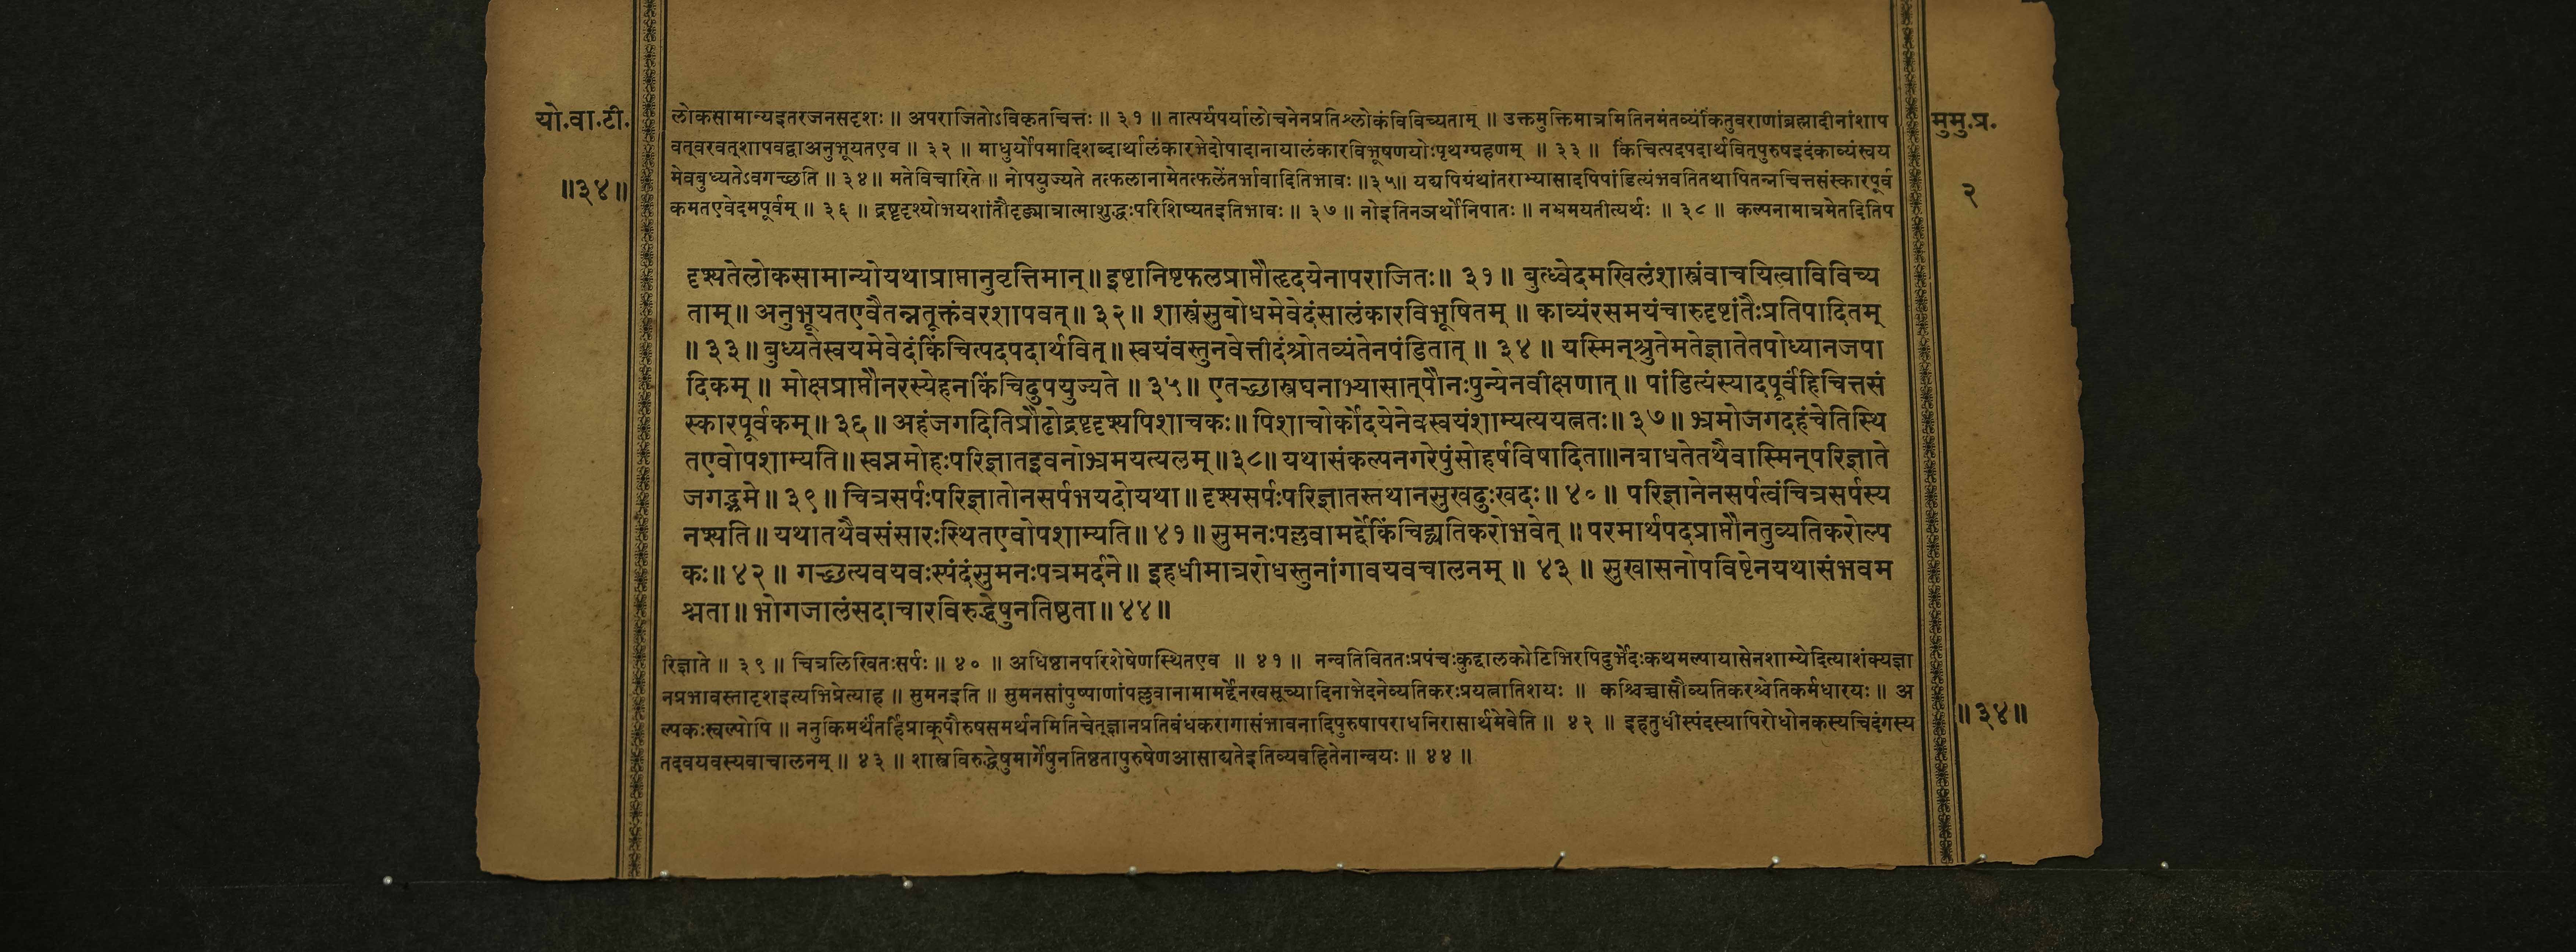 यो.वा.टी.
॥३४॥
मुमु.प्र.
२
लोकसामान्यइतरजनसदृशः ॥ अपराजितोऽविकृतचित्तः ॥ ३१ ॥ तात्पर्यपर्यालोचनेनप्रतिश्लोकंविविच्यताम् ॥ उक्तमुक्तिमात्रमितिनमंतव्यंकिंतुवराणांब्रह्मादीनांशाप
वत्वरवत्शापवद्वाअनुभूयतएव ॥ ३२ ॥ माधुर्योपमादिशब्दार्थालंकारभेदोपादानायालंकारविभूषणयोःपृथग्ग्रहणम् ॥ ३३ ॥ किंचित्पदपदार्थवित्पुरुषइदंकाव्यंस्वय
मेवबुध्यतेऽवगच्छति ॥ ३४ ॥ मतेविचारिते ॥ नोपयुज्यते तत्फलानामेतत्फलेंतर्भावादितिभावः ॥३५॥ यद्यपिग्रंथांतराभ्यासादपिपांडित्यंभवतितथापितन्नचित्तसंस्कारपूर्व
कमतएवेदमपूर्वम् ॥ ३६ ॥ द्रष्टृदृश्योभयशांतौदृङ्मात्रात्माशुद्धःपरिशिष्यतइतिभावः ॥ ३७ ॥ नोइतिनञर्थोनिपातः ॥ नभ्रमयतीत्यर्थः ॥ ३८ ॥ कल्पनामात्रमेतदितिप
दृश्यतेलोकसामान्योयथाप्राप्तानुवृत्तिमान् ॥ इष्टानिष्टफलप्राप्तौहृदयेनापराजितः ॥ ३१ ॥ बुध्वेदमखिलंशास्त्रंवाचयित्वाविविच्य
ताम् ॥ अनुभूयतएवैतन्नतूक्तंवरशापवत् ॥ ३२ ॥ शास्त्रंसुबोधमेवेदंसालंकारविभूषितम् ॥ काव्यंरसमयंचारुदृष्टांतैःप्रतिपादितम्
॥ ३३ ॥ बुध्यतेस्वयमेवेदंकिंचित्पदपदार्थवित् ॥ स्वयंवस्तुनवेत्तीदंश्रोतव्यंतेनपंडितात् ॥ ३४ ॥ यस्मिन्श्रुतेमतेज्ञातेतपोध्यानजपा
दिकम् ॥ मोक्षप्राप्तौनरस्येहनकिंचिदुपयुज्यते ॥ ३५ ॥ एतच्छास्त्रघनाभ्यासात्पौनःपुन्येनवीक्षणात् ॥ पांडित्यंस्यादपूर्वंहिचित्तसं
स्कारपूर्वकम् ॥ ३६ ॥ अहंजगदितिप्रौढोद्रष्टृदृश्यपिशाचकः ॥ पिशाचोर्कोदयेनेवस्वयंशाम्यत्ययत्नतः ॥ ३७ ॥ भ्रमोजगदहंचेतिस्थि
तएवोपशाम्यति ॥ स्वप्नमोहःपरिज्ञातइवनोभ्रमयत्यलम् ॥३८॥ यथासंकल्पनगरेपुंसोहर्षविषादिता॥नबाधतेतथैवास्मिन्परिज्ञाते
जगद्भ्रमे ॥ ३९ ॥ चित्रसर्पःपरिज्ञातोनसर्पभयदोयथा ॥ दृश्यसर्पःपरिज्ञातस्तथानसुखदुःखदः ॥ ४० ॥ परिज्ञानेनसर्पत्वंचित्रसर्पस्य
नश्यति ॥ यथातथैवसंसारःस्थितएवोपशाम्यति ॥ ४१ ॥ सुमनःपल्लवामर्द्देकिंचिद्व्यतिकरोभवेत् ॥ परमार्थपदप्राप्तौनतुव्यतिकरोल्प
कः ॥ ४२ ॥ गच्छत्यवयवःस्पंदंसुमनःपत्रमर्दने ॥ इहधीमात्ररोधस्तुनांगावयवचालनम् ॥ ४३ ॥ सुखासनोपविष्टेनयथासंभवम
श्नता ॥ भोगजालंसदाचारविरुद्धेषुनतिष्ठता ॥ ४४ ॥
रिज्ञाते ॥ ३९ ॥ चित्रलिखितःसर्पः ॥ ४० ॥ अधिष्ठानपरिशेषेणस्थितएव ॥ ४१ ॥ नन्वतिविततःप्रपंचःकुद्दालकोटिभिरपिदुर्भेदःकथमल्पायासेनशाम्येदित्याशंक्यज्ञा
नप्रभावस्तादृशइत्यभिप्रेत्याह ॥ सुमनइति ॥ सुमनसांपुष्पाणांपल्लवानामामर्द्देनखसूच्यादिनाभेदनेव्यतिकरःप्रयत्नातिशयः ॥ कश्चिच्चासौव्यतिकरश्चेतिकर्मधारयः ॥ अ
ल्पकःस्वल्पोपि ॥ ननुकिमर्थंतर्हिप्राक्पौरुषसमर्थनमितिचेत्ज्ञानप्रतिबंधकरागासंभावनादिपुरुषापराधनिरासार्थमेवेति ॥ ४२ ॥ इहतुधीस्पंदस्यापिरोधोनकस्यचिदंगस्य
तदवयवस्यवाचालनम् ॥ ४३ ॥ शास्त्रविरुद्धेषुमार्गेषुनतिष्ठतापुरुषेणआसाद्यतेइतिव्यवहितेनान्वयः ॥ ४४ ॥
॥३४॥